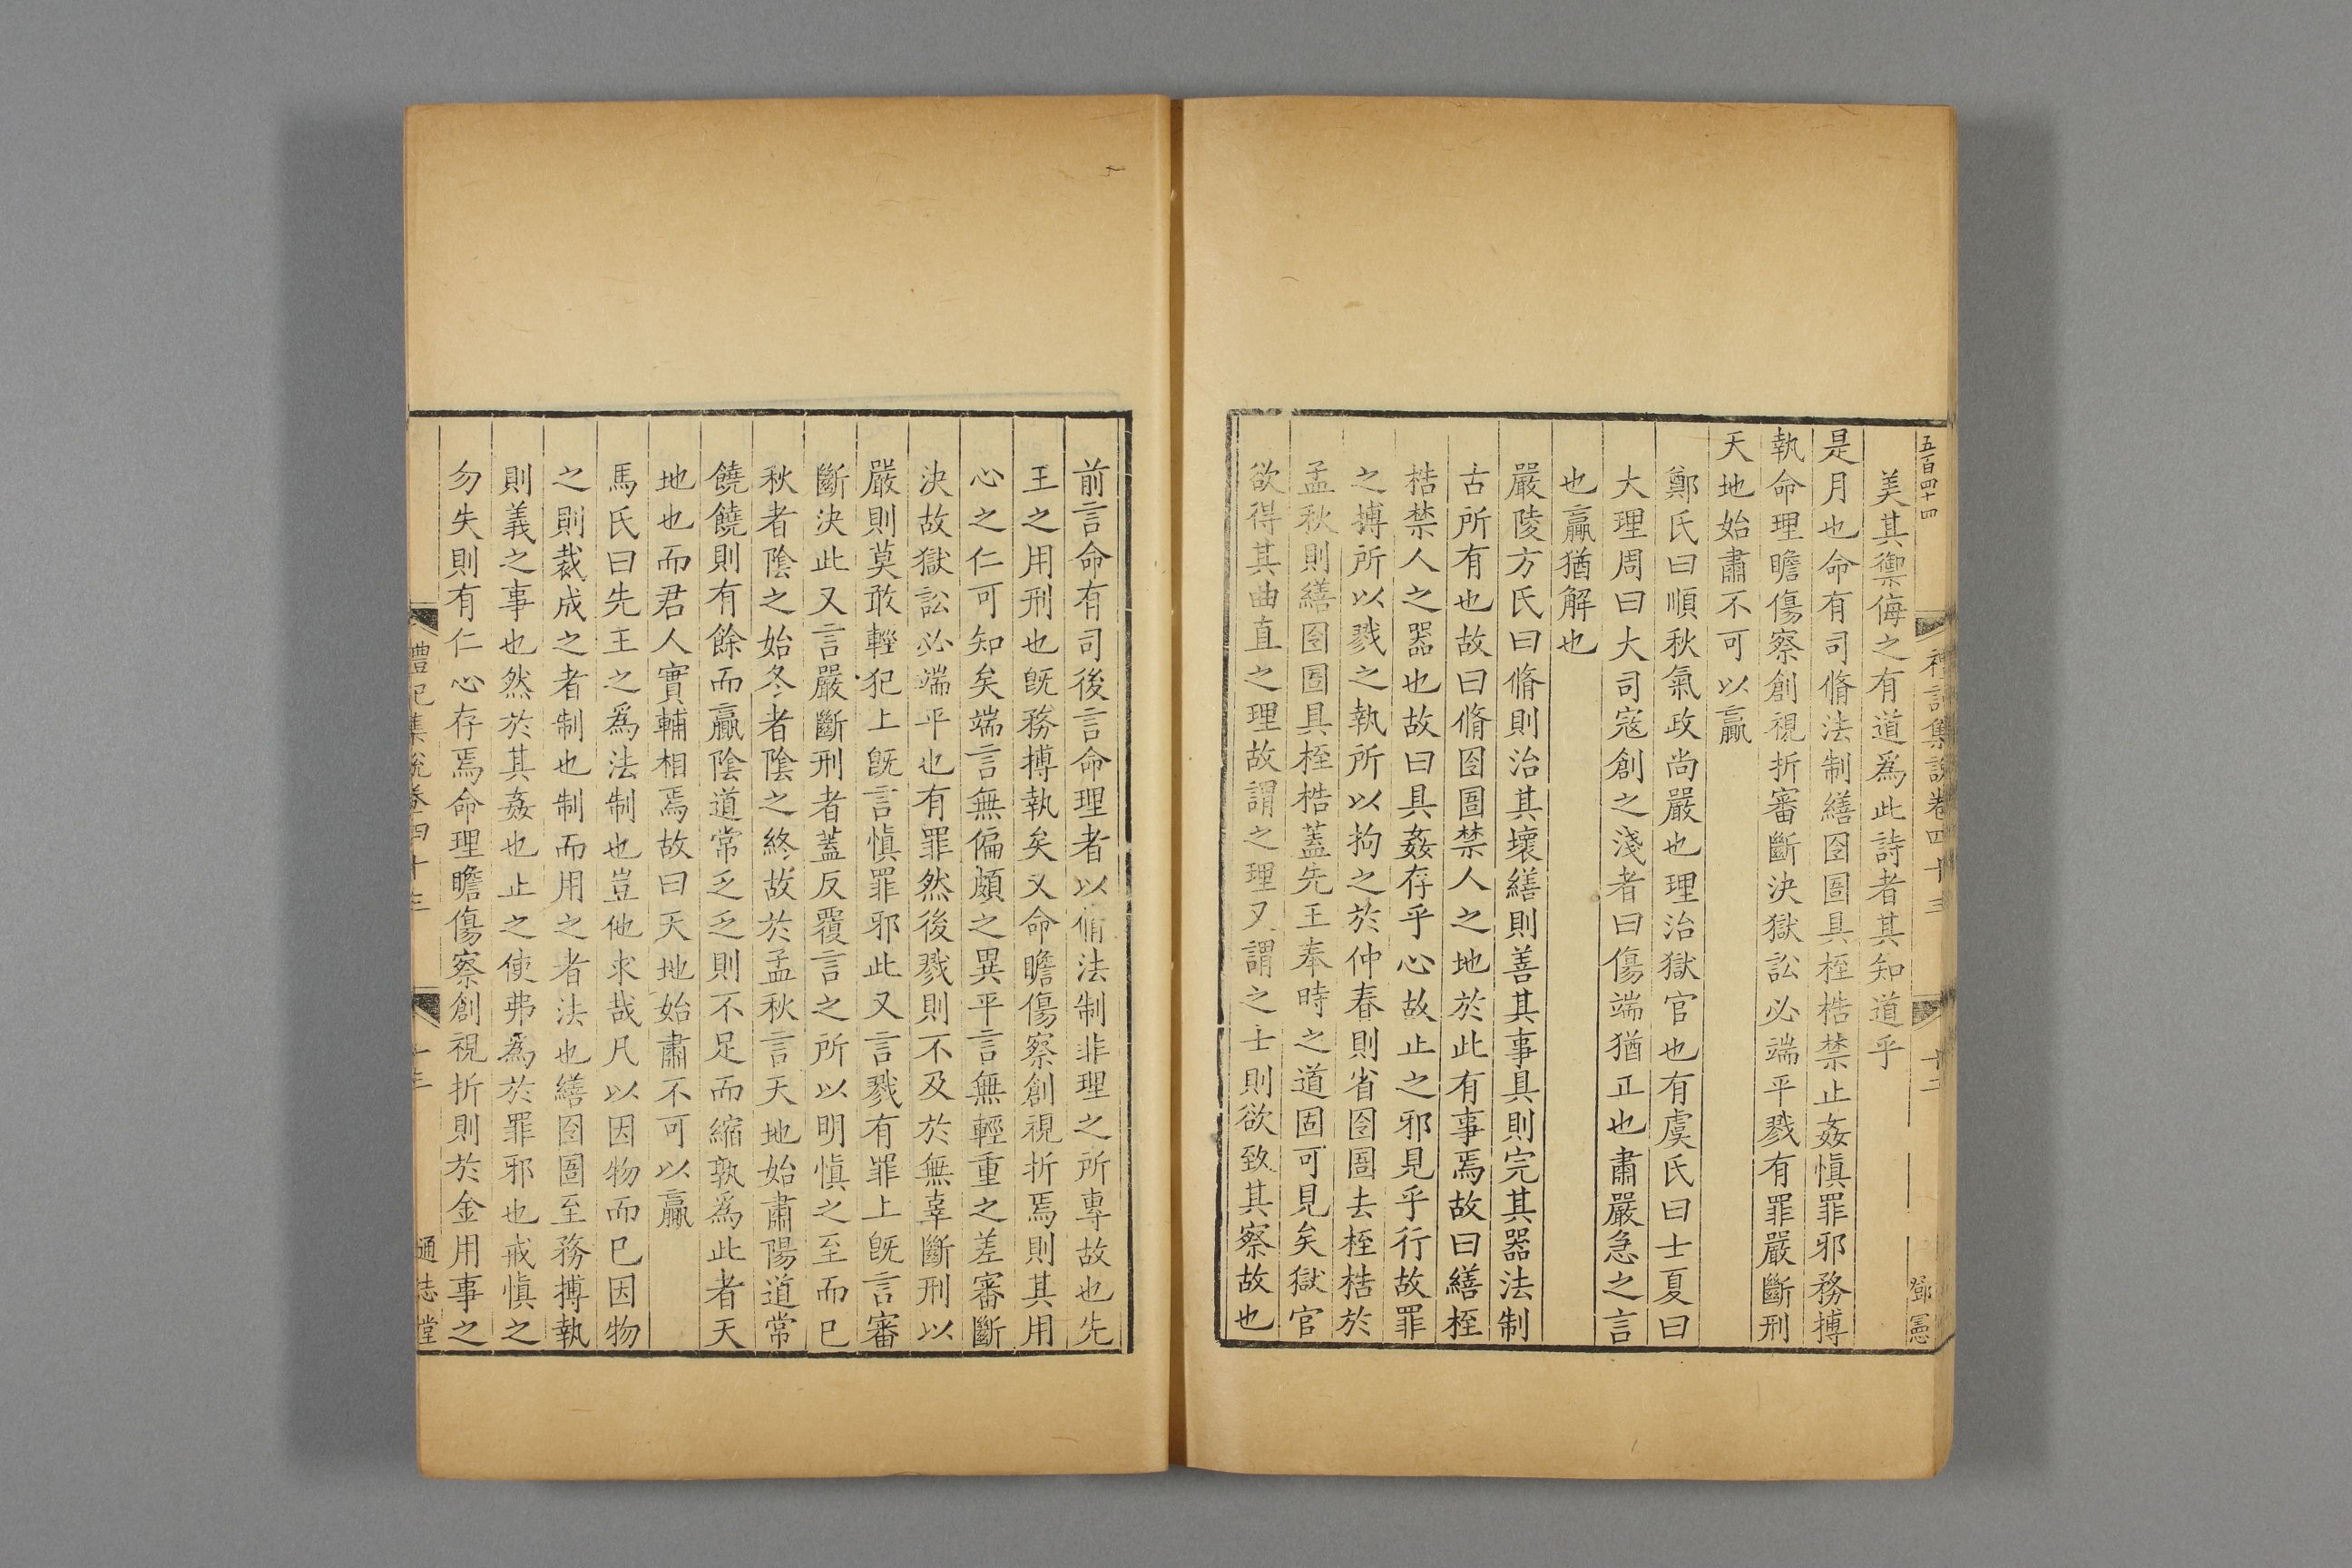 五百四十四
禮記集說卷四十三
十二
鄧憲
美其禦侮之有道爲此詩者其知道乎
是月也命有司脩法制繕囹圄具桎梏禁止姦愼罪邪務搏
執命理瞻傷察創視折審斷決獄訟必端平戮有罪嚴斷刑
天地始肅不可以贏
鄭氏曰順秋氣政尚嚴也理治獄官也有虞氏曰士夏曰
大理周曰大司寇創之淺者曰傷端猶正也肅嚴急之言
也贏猶解也
嚴陵方氏曰脩則治其壞繕則善其事具則完其器法制
古所有也故曰脩囹圄禁人之地於此有事焉故曰繕桎
梏禁人之器也故曰具姦存乎心故止之邪見乎行故罪
之搏所以戮之執所以拘之於仲春則省囹圄去桎梏於
孟秋則繕囹圄具桎梏蓋先王奉時之道固可見矣獄官
欲得其曲直之理故謂之理又謂之士則欲致其察故也
前言命有司後言命理者以脩法制非理之所專故也先
王之用刑也旣務搏執矣又命瞻傷察創視折焉則其用
心之仁可知矣端言無偏頗之異平言無輕重之差審斷
決故獄訟必端平也有罪然後戮則不及於無辜斷刑以
嚴則莫敢輕犯上旣言愼罪邪此又言戮有罪上旣言審
斷決此又言嚴斷刑者蓋反覆言之所以明愼之至而已
秋者陰之始冬者陰之終故於孟秋言天地始肅陽道常
饒饒則有餘而贏陰道常乏乏則不足而縮孰爲此者天
地也而君人實輔相焉故曰天地始肅不可以贏
馬氏曰先王之爲法制也豈他求哉凡以因物而已因物
之則裁成之者制也制而用之者法也繕囹圄至務搏執
則義之事也然於其姦也止之使弗爲於罪邪也戒愼之
勿失則有仁心存焉命理瞻傷察創視折則於金用事之
禮記集說卷四十三
十三
通志堂